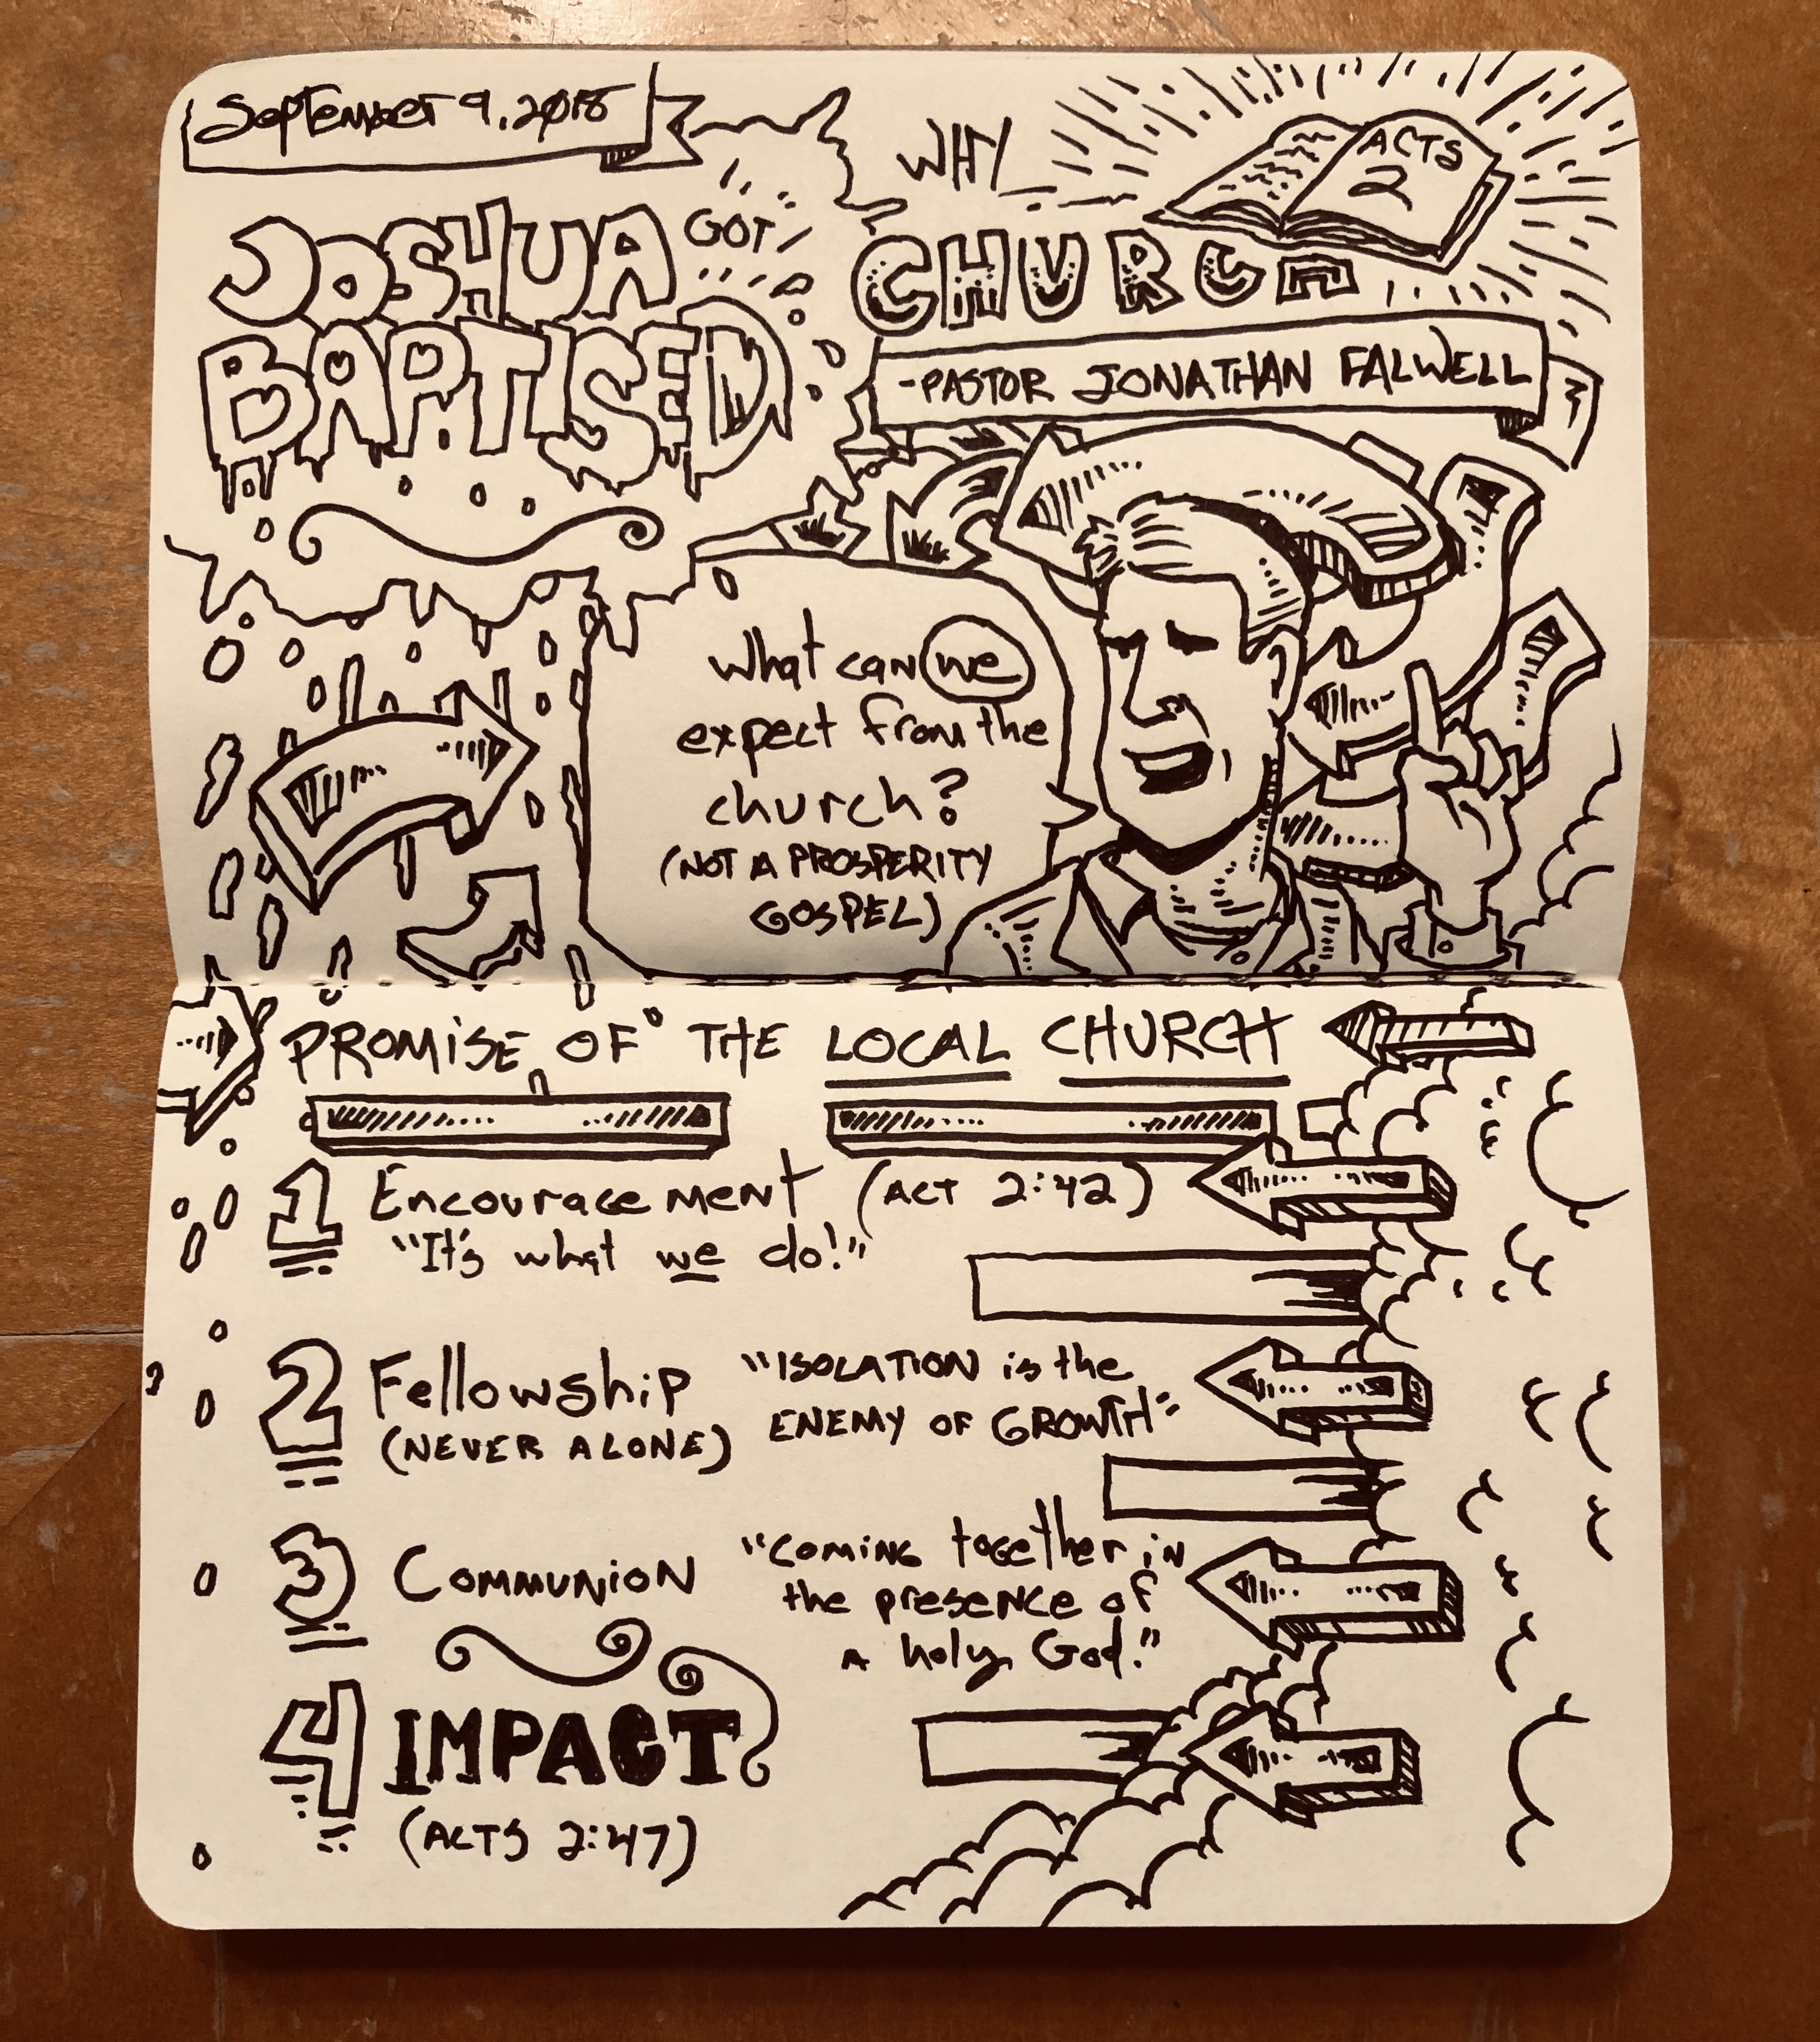 September 9, 2018
JOSHUA GOT
BAPTISED
WHY
CHURCH
ACTS
2
-PASTOR JONATHAN FALWELL
What can we
expect from the
church?
(NOT A PROSPERITY
GOSPEL)
PROMISE OF THE LOCAL CHURCH
1 Encouragement (ACT 2:42)
"It's what we do!"
2 Fellowship "ISOLATION is the
(NEVER ALONE) ENEMY OF GROWTH"
3 Communion "Coming together in
the presence of
a holy God."
4 IMPACT
(ACTS 2:47)